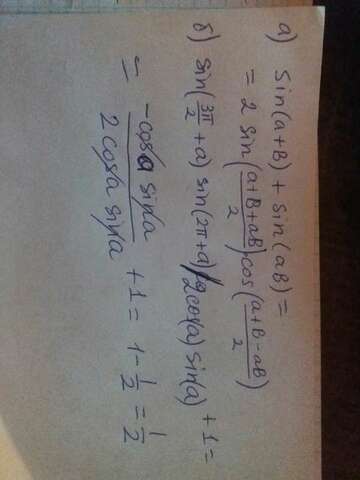 а) sin(a+B) + sin(aB) =
= 2 sin((a+B+aB)/2) cos((a+B-aB)/2)
б) sin(3π/2 + a) sin(2π+a)/(2cos(a) sin(a)) + 1 =
= (-cosa sina)/(2cosa sina) + 1 = 1 - 1/2 = 1/2